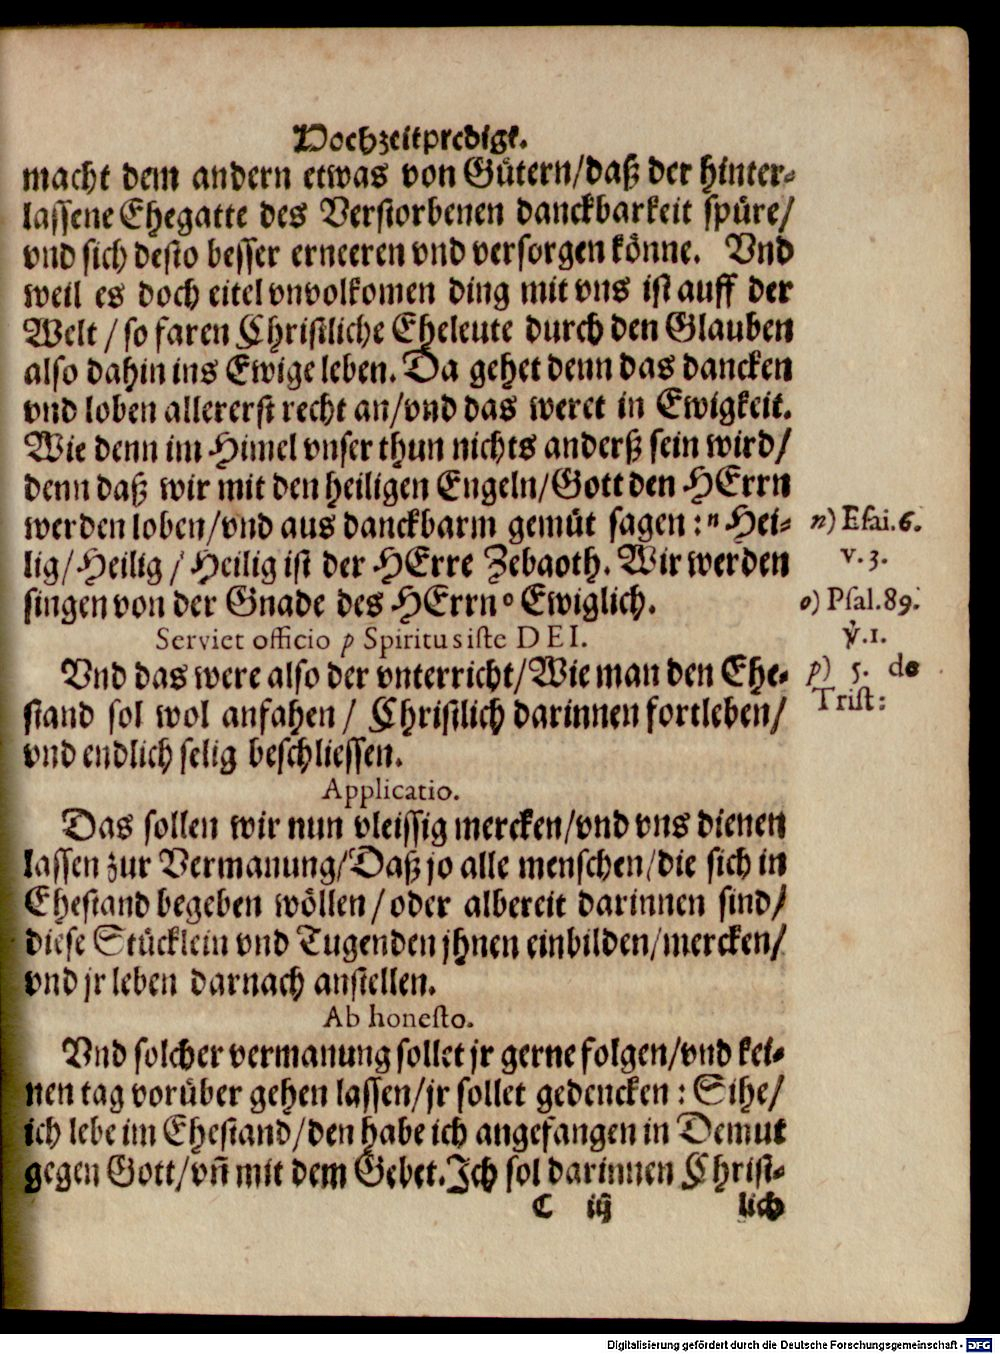 Hochzeitpredigt.
macht dem andern etwas von Gütern/daß der hinter-
lassene Ehegatte des Verstorbenen danckbarkeit spüre/
vnd sich desto besser erneeren vnd versorgen könne. Vnd
weil es doch eitel vnvolkomen ding mit vns ist auff der
Welt / so faren Christliche Eheleute durch den Glauben
also dahin ins Ewige leben. Da gehet denn das dancken
vnd loben allererst recht an/vnd das weret in Ewigkeit.
Wie denn im Himel vnser thun nichts anderß sein wird/
denn daß wir mit den heiligen Engeln/Gott den HErrn
werden loben/vnd aus danckbarm gemüt sagen: n Hei-
lig/Heilig / Heilig ist der HErre Zebaoth. Wir werden
singen von der Gnade des HErrn o Ewiglich.
n) Esai.6.
v.3.
o) Psal.89.
v.1.
Serviet officio p Spiritus iste DEI.
p) 5. de
Trist:
Vnd das were also der vnterricht/Wie man den Ehe-
stand sol wol anfahen / Christlich darinnen fortleben/
vnd endlich selig beschliessen.
Applicatio.
Das sollen wir nun vleissig mercken/vnd vns dienen
lassen zur Vermanung/Daß jo alle menschen/die sich in
Ehestand begeben wöllen/oder albereit darinnen sind/
diese Stücklein vnd Tugenden jhnen einbilden/mercken/
vnd jr leben darnach anstellen.
Ab honesto.
Vnd solcher vermanung sollet jr gerne folgen/vnd kei-
nen tag vorüber gehen lassen/jr sollet gedencken: Sihe/
ich lebe im Ehestand/den habe ich angefangen in Demut
gegen Gott/vn̄ mit dem Gebet. Ich sol darinnen Christ-
C iij lich
Digitalisierung gefördert durch die Deutsche Forschungsgemeinschaft - DFG